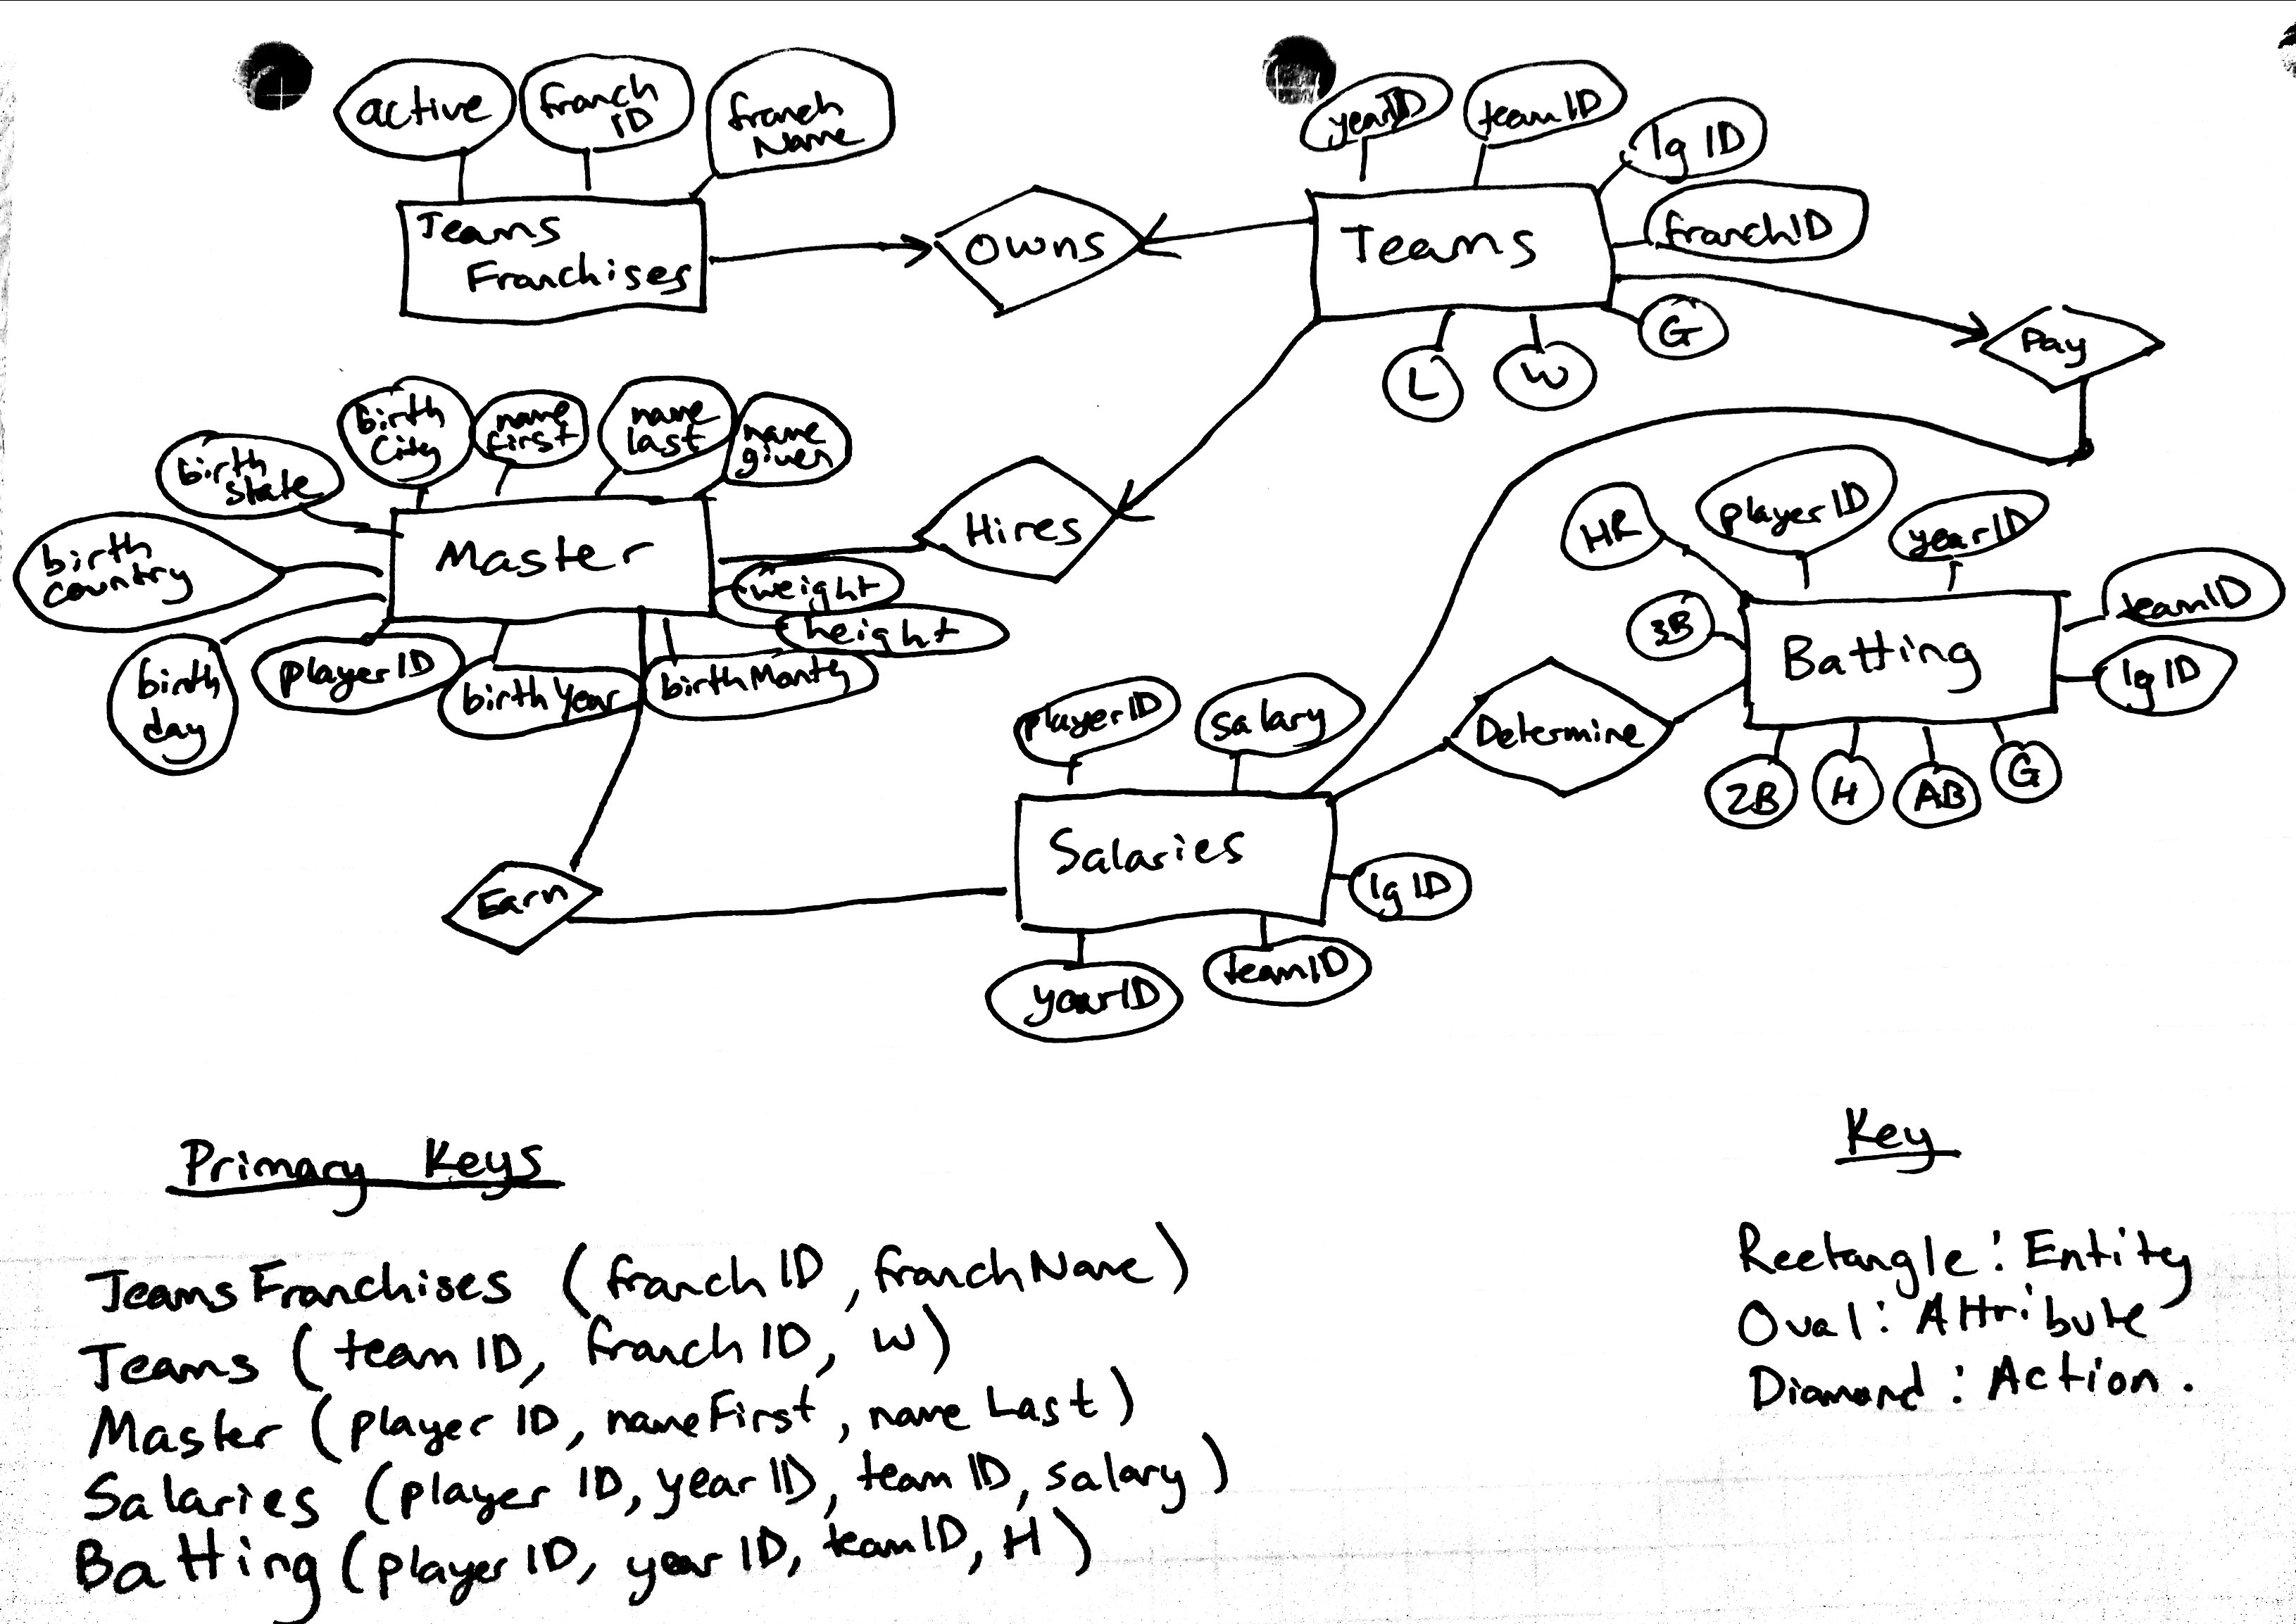 active
franch
ID
franch
Name
yearID
teamID
lgID
franchID
Teams
Franchises
Owns
Teams
G
L
W
Pay
birth
City
name
first
name
last
name
given
birth
state
birth
country
birth
day
Master
Hires
weight
height
playerID
birthYear
birthMonth
HR
playerID
yearID
teamID
3B
Batting
lgID
2B
H
AB
G
Determine
playerID
salary
Salaries
lgID
Earn
yearID
teamID
Primary Keys
TeamsFranchises (franchID, franchName)
Teams (teamID, franchID, W)
Master (playerID, nameFirst, nameLast)
Salaries (playerID, yearID, teamID, salary)
Batting (playerID, yearID, teamID, H)
Key
Rectangle: Entity
Oval: Attribute
Diamond: Action.